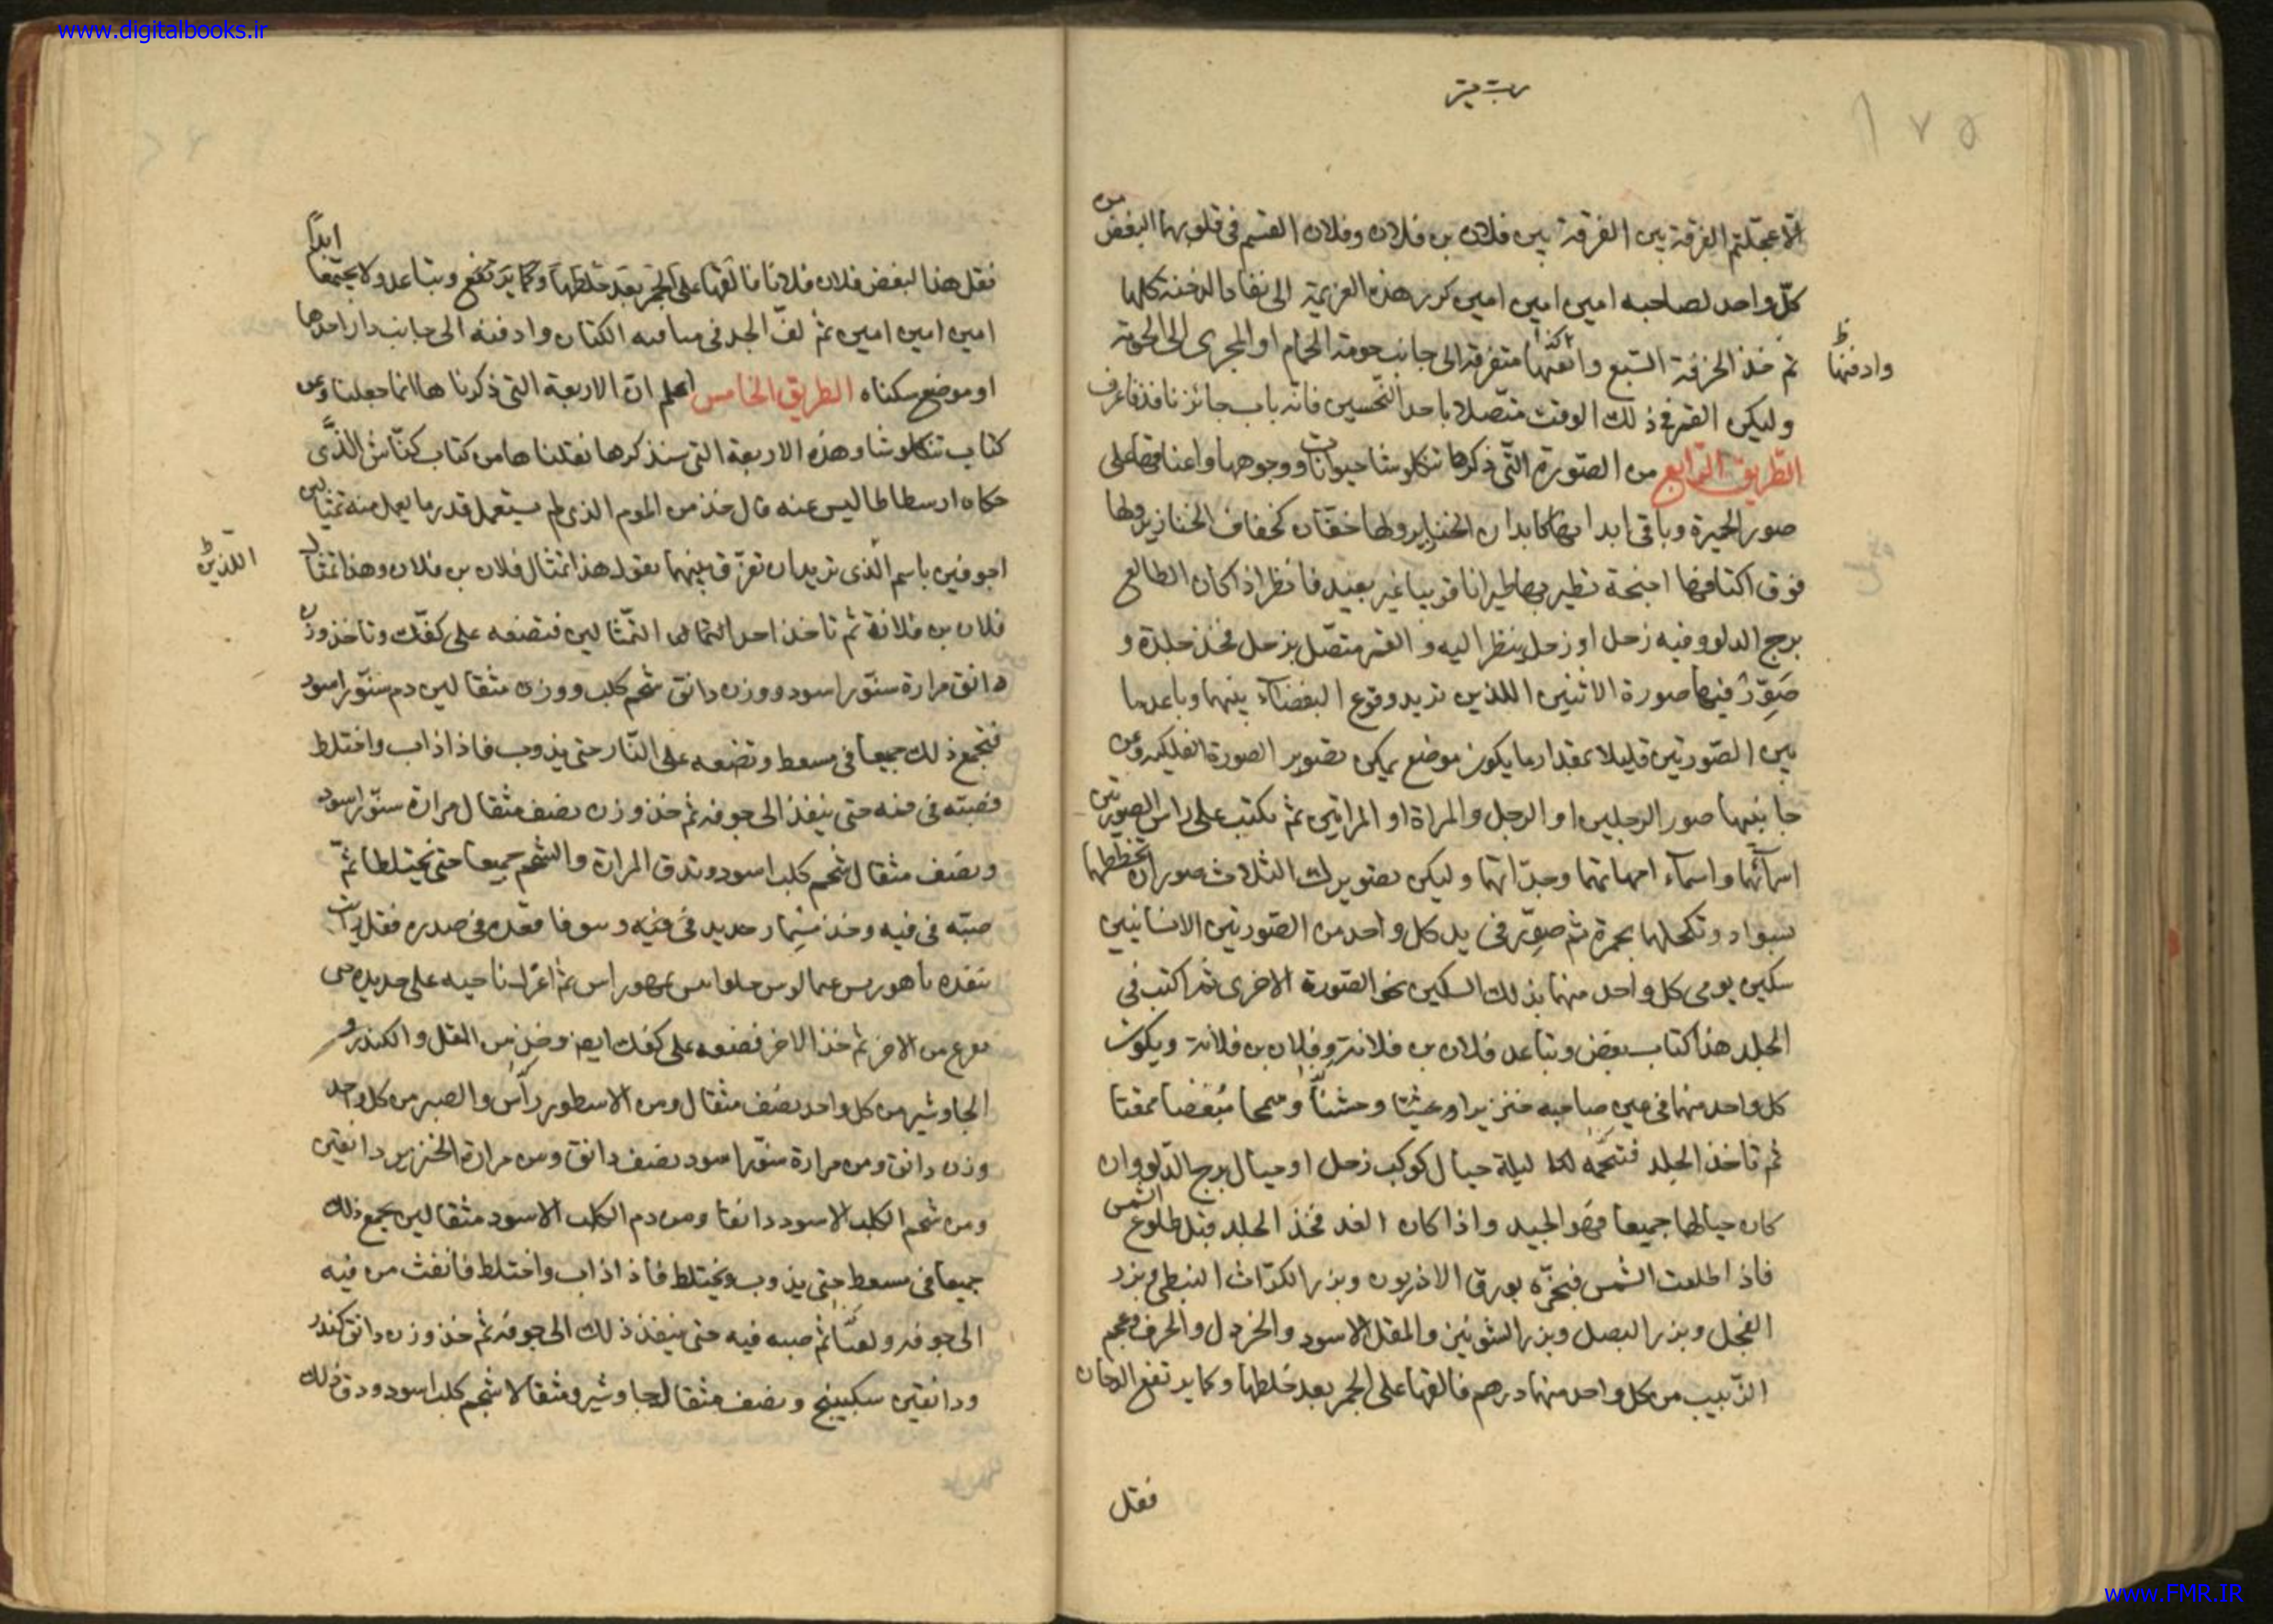 www.digitalbooks.ir
الا عجلتم الفرقة بين الفرقة بين فلان بن فلان وفلان القسم فى قلوبهما البغض من
كلّ واحد لصاحبه امين امين امين كرر هذه العزيمة الى نفاد الدخنة كلها
ثم خذ الخزفة السبع وانقتها كذا متفرقة الى جانب حومة الحمام او المجرى الى الحومة
وادفنها ظ
وليكن القمر فى ذلك الوقت متّصلا باحد النّحسين فانّه باب جائز نافذ فاعرف
الطّريق الرّابع من الصّورة الّتى ذكرها تنكلوشا حيوانات ووجوهها واعناقها على
صور الحيرة وباقى ابدانها كابدان الخنازير ولها خفّان كخفاف الخنازير ولها
فوق اكتافها اجنحة تطير بها طيرانا قريبا غير بعيد فانظر اذا كان الطالع
برج الدلو وفيه زحل او زحل ينظر اليه و القمر متّصل بزحل فخذ جلدة و
صَوِّرْ فيها صورة الاثنين اللذين تريد وقوع البغضاء بينهما وباعد ما
بين الصّورتين قليلا بمقدار ما يكون موضع يمكن تصوير الصورة الفلكيه وعن
جانبيها صور الرجلين او الرجل والمراة او المراتين ثم تكتب على راس الصورتين
اسمائهما واسماء امهاتهما وجدّاتهما وليكن تصويرك الثلاث صور ان تخططها
بسواد وتكحلها بحمرة ثم صوّر فى يد كل واحد من الصّورتين الانسانيين
سكين يومى كل واحد منهما بذلك السكين نحو الصّورة الاخرى ثم اكتب فى
الجلد هذا كتاب بغض وتباعد فلان بن فلانة وفلان بن فلانة ويكون
كل واحد منهما فى عين صاحبه خنزيرا وعبثا وحشيّا وسمجا مبغضا ممقتا
ثم تاخذ الجلد فتنجّمه ليلة حيال كوكب زحل او حيال برج الدلو وان
كان حيالها جميعا فهو الجيد واذا كان الغد فخذ الجلد قبل طلوع الشمس
فاذا طلعت الشّمس فبخّره بورق الاذريون وبزر الكرّاث النبطى وبزر
الفجل وبزر البصل وبزر الشونيز والمقل الاسود والخردل والحرف وعجم
الزّبيب من كل واحد منها درهم فالقها على الجمر بعد خلطها وكما يرتفع الدخان
فقل
فقل هذا لبغض فلان فلانا فالقها على الجمر بعد خلطها وكما يرتفع ويتباعد ولا يجتمعا ابدًا
امين امين امين ثم لفّ الجلد فى مسافة الكتان وادفنه الى جانب دار احدهما
او موضع سكناه الطريق الخامس اعلم ان الاربعة التى ذكرناها انما جعلنا وعن
كتاب تنكلوشا وهذه الاربعة التى سنذكرها نقلناها من كتاب كنّاش الّذى
حكاه ارسطاطاليس عنه قال خذ من الموم الذى لم يستعمل قدر ما يعمل منه تمثالين
اجوفين باسم الّذى تريد ان تفرّق بينهما تقول هذا تمثال فلان بن فلان وهذا تمثال
اللذين ظ
فلان بن فلانة ثم تاخذ احد التمثالين فتضعه على كفّك وتاخذ وزن
دانق مرارة سنّور اسود ووزن دانق شحم كلب ووزن مثقالين دم سنّور اسود
فتجمع ذلك جميعا فى مسعط وتضعه على النّار حتى يذوب فاذا ذاب واختلط
فصبّه فى فمه حتى ينفذ الى جوفه ثم خذ وزن نصف مثقال مرارة سنّور اسود
ونصف مثقال شحم كلب اسود وتدق المرارة والشحم جميعا حتى يختلطا ثمّ
صبّه فى فيه وخذ مسمار حديد فى صدره فقل
على حديده حتى
من الاخر ثم خذ الاخر فضعه على كفك ايضا وخذ من المقل والكندر و
الجاوشير من كل واحد نصف مثقال ومن والصبر من كل واحد
وزن دانق ومن مرارة سنّور اسود نصف دانق ومن مرارة الخنزير دانقين
ومن شحم الكلب الاسود دانقا ومن دم الكلب الاسود مثقالين يجمع ذلك
جميعا فى مسعط حتى يذوب ويختلط فاذا ذاب واختلط فانفث من فيه
الى جوفه ثم صبه فيه حتى ينفذ ذلك الى جوفه ثم خذ وزن دانق كندر
ودانقين سكبينج ونصف مثقال جاوشير ومثقالا شحم كلب اسود ودق ذلك
www.FMR.IR